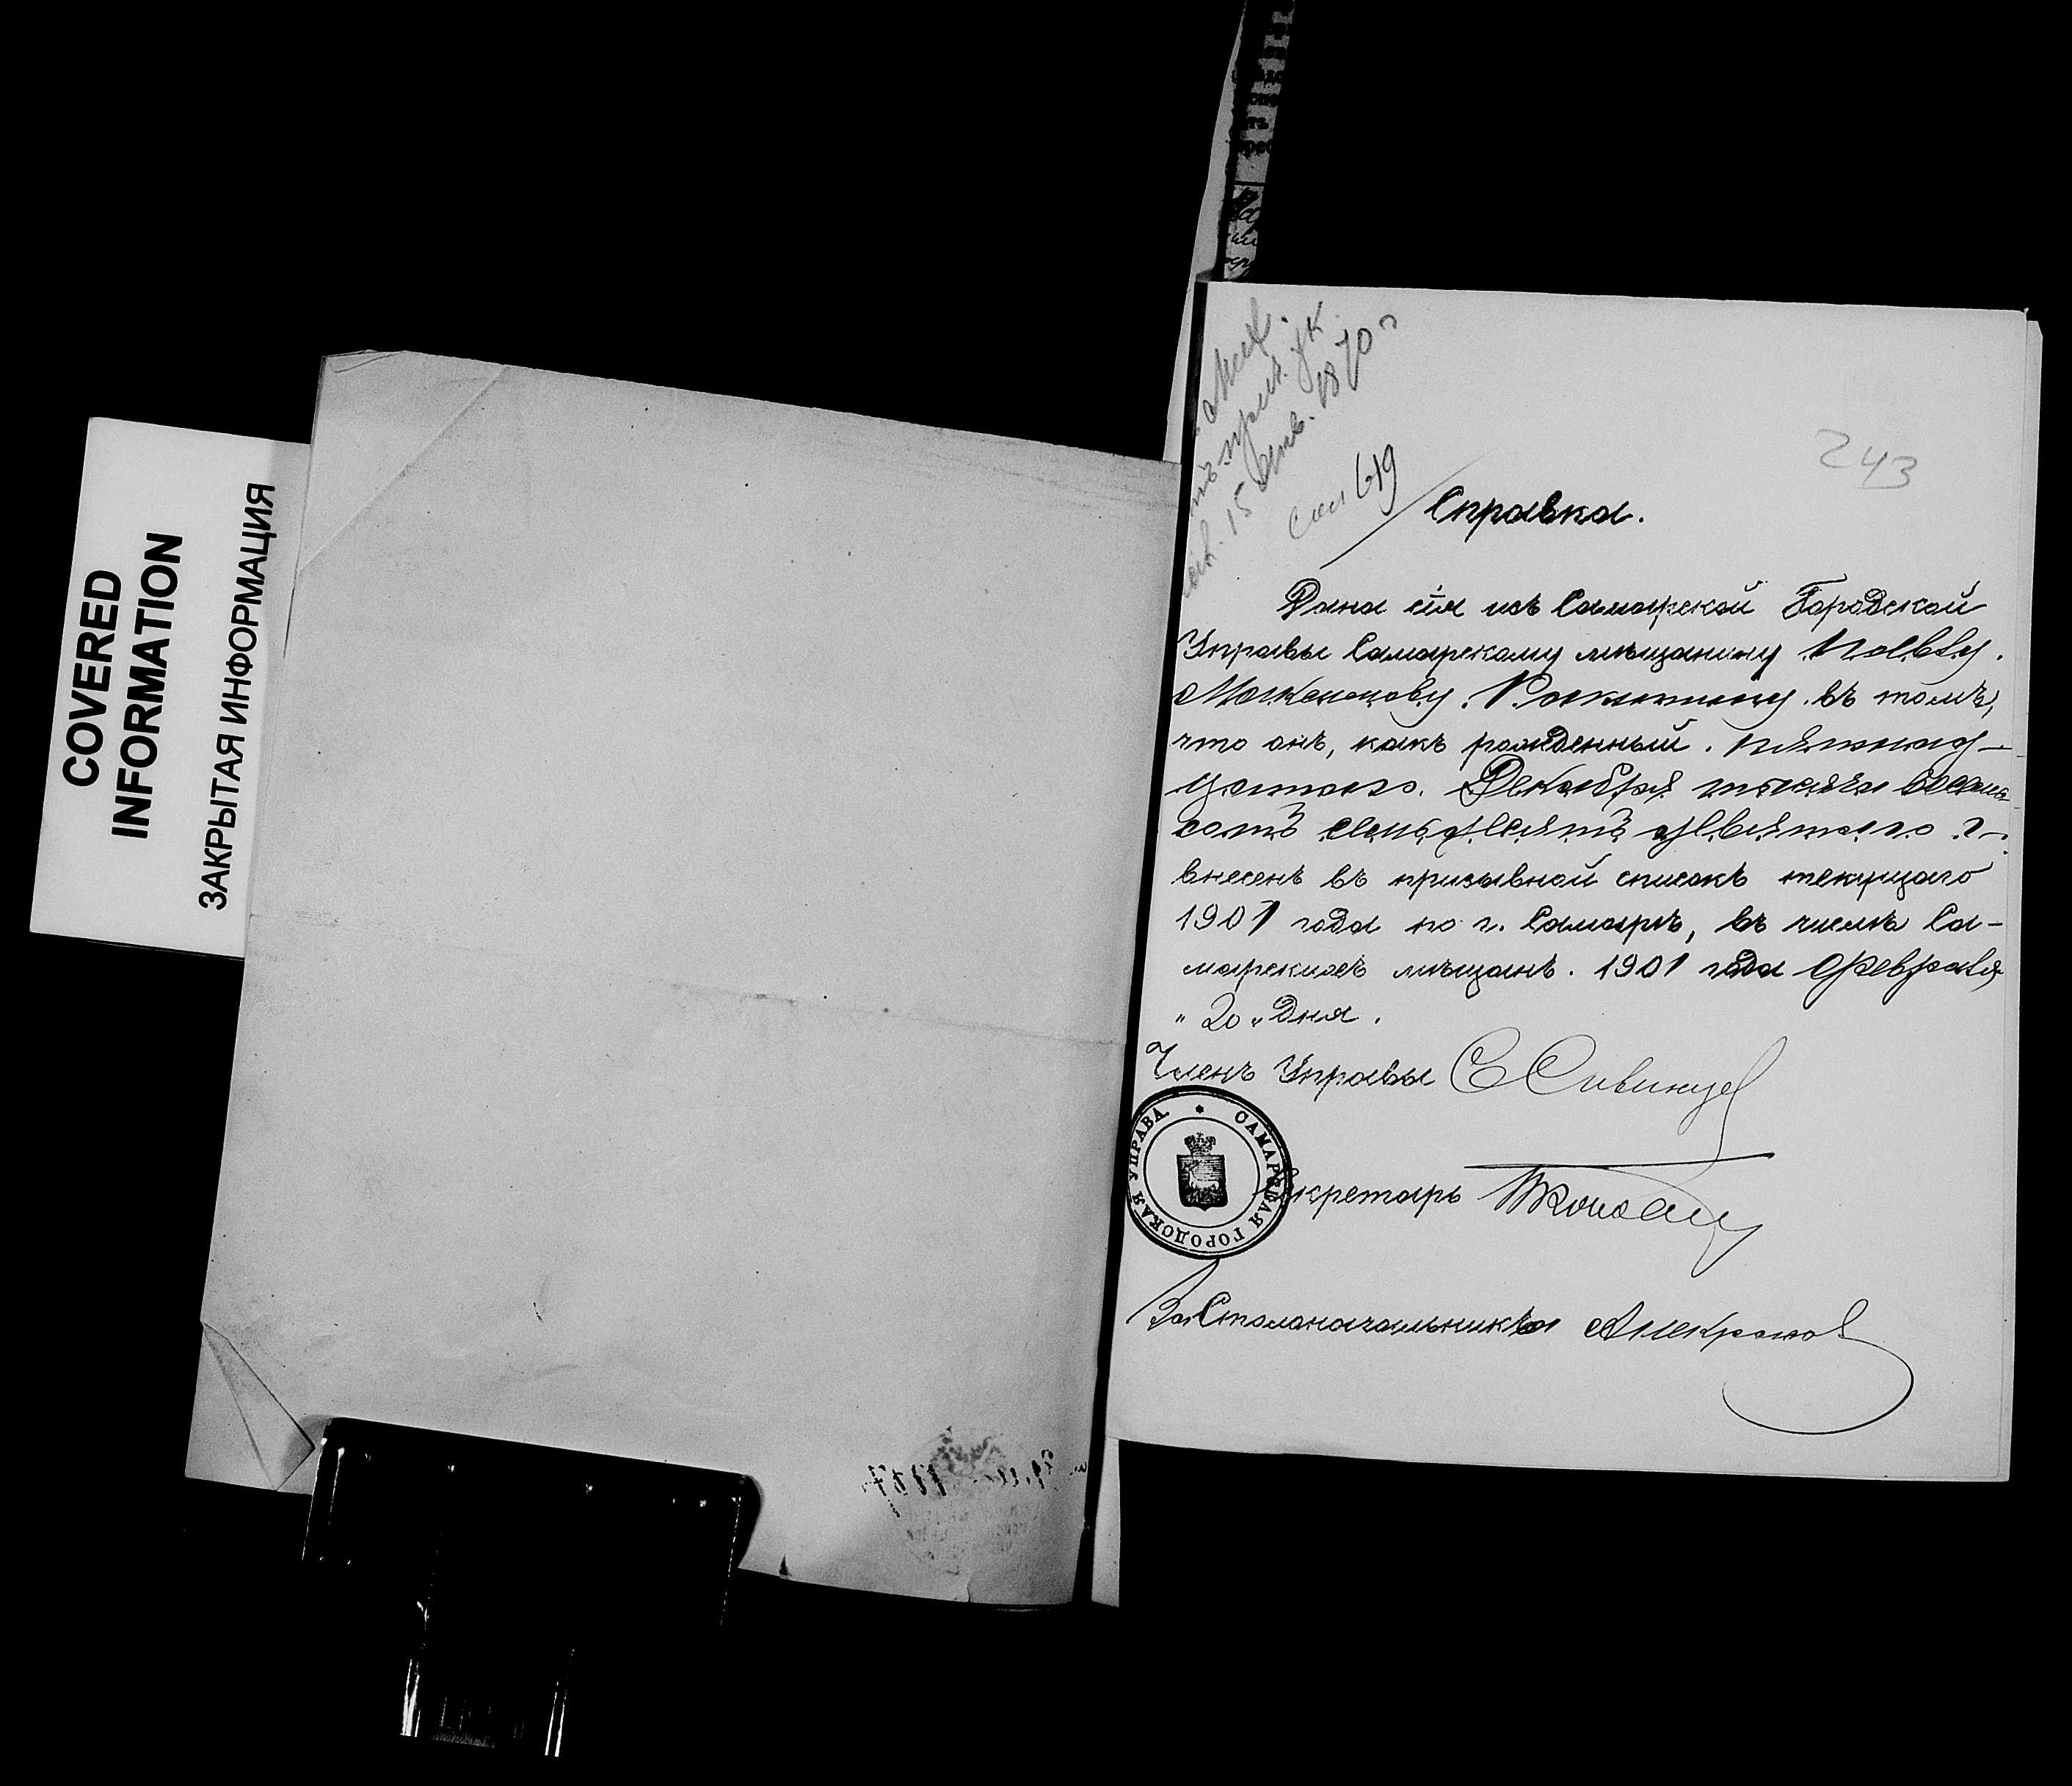 COVERED
INFORMATION
ЗАКРЫТАЯ ИНФОРМАЦИЯ
243
Справка.
Дана сія изъ Самарской Городской
Управы Самарскому мѣщанину Павлу
Ракитину въ томъ,
что онъ, какъ рожденный пятнад-
цатаго Декабря тысяча восемь
сотъ семьдесятъ девятаго г.
внесенъ въ призывной списокъ текущаго
1901 года по г. Самарѣ, въ числѣ Са-
марскихъ мѣщанъ. 1901 года Февраля
" 20 " дня.
Членъ Управы
САМАРСКАЯ ГОРОДСКАЯ УПРАВА
Секретарь
За Столоначальника